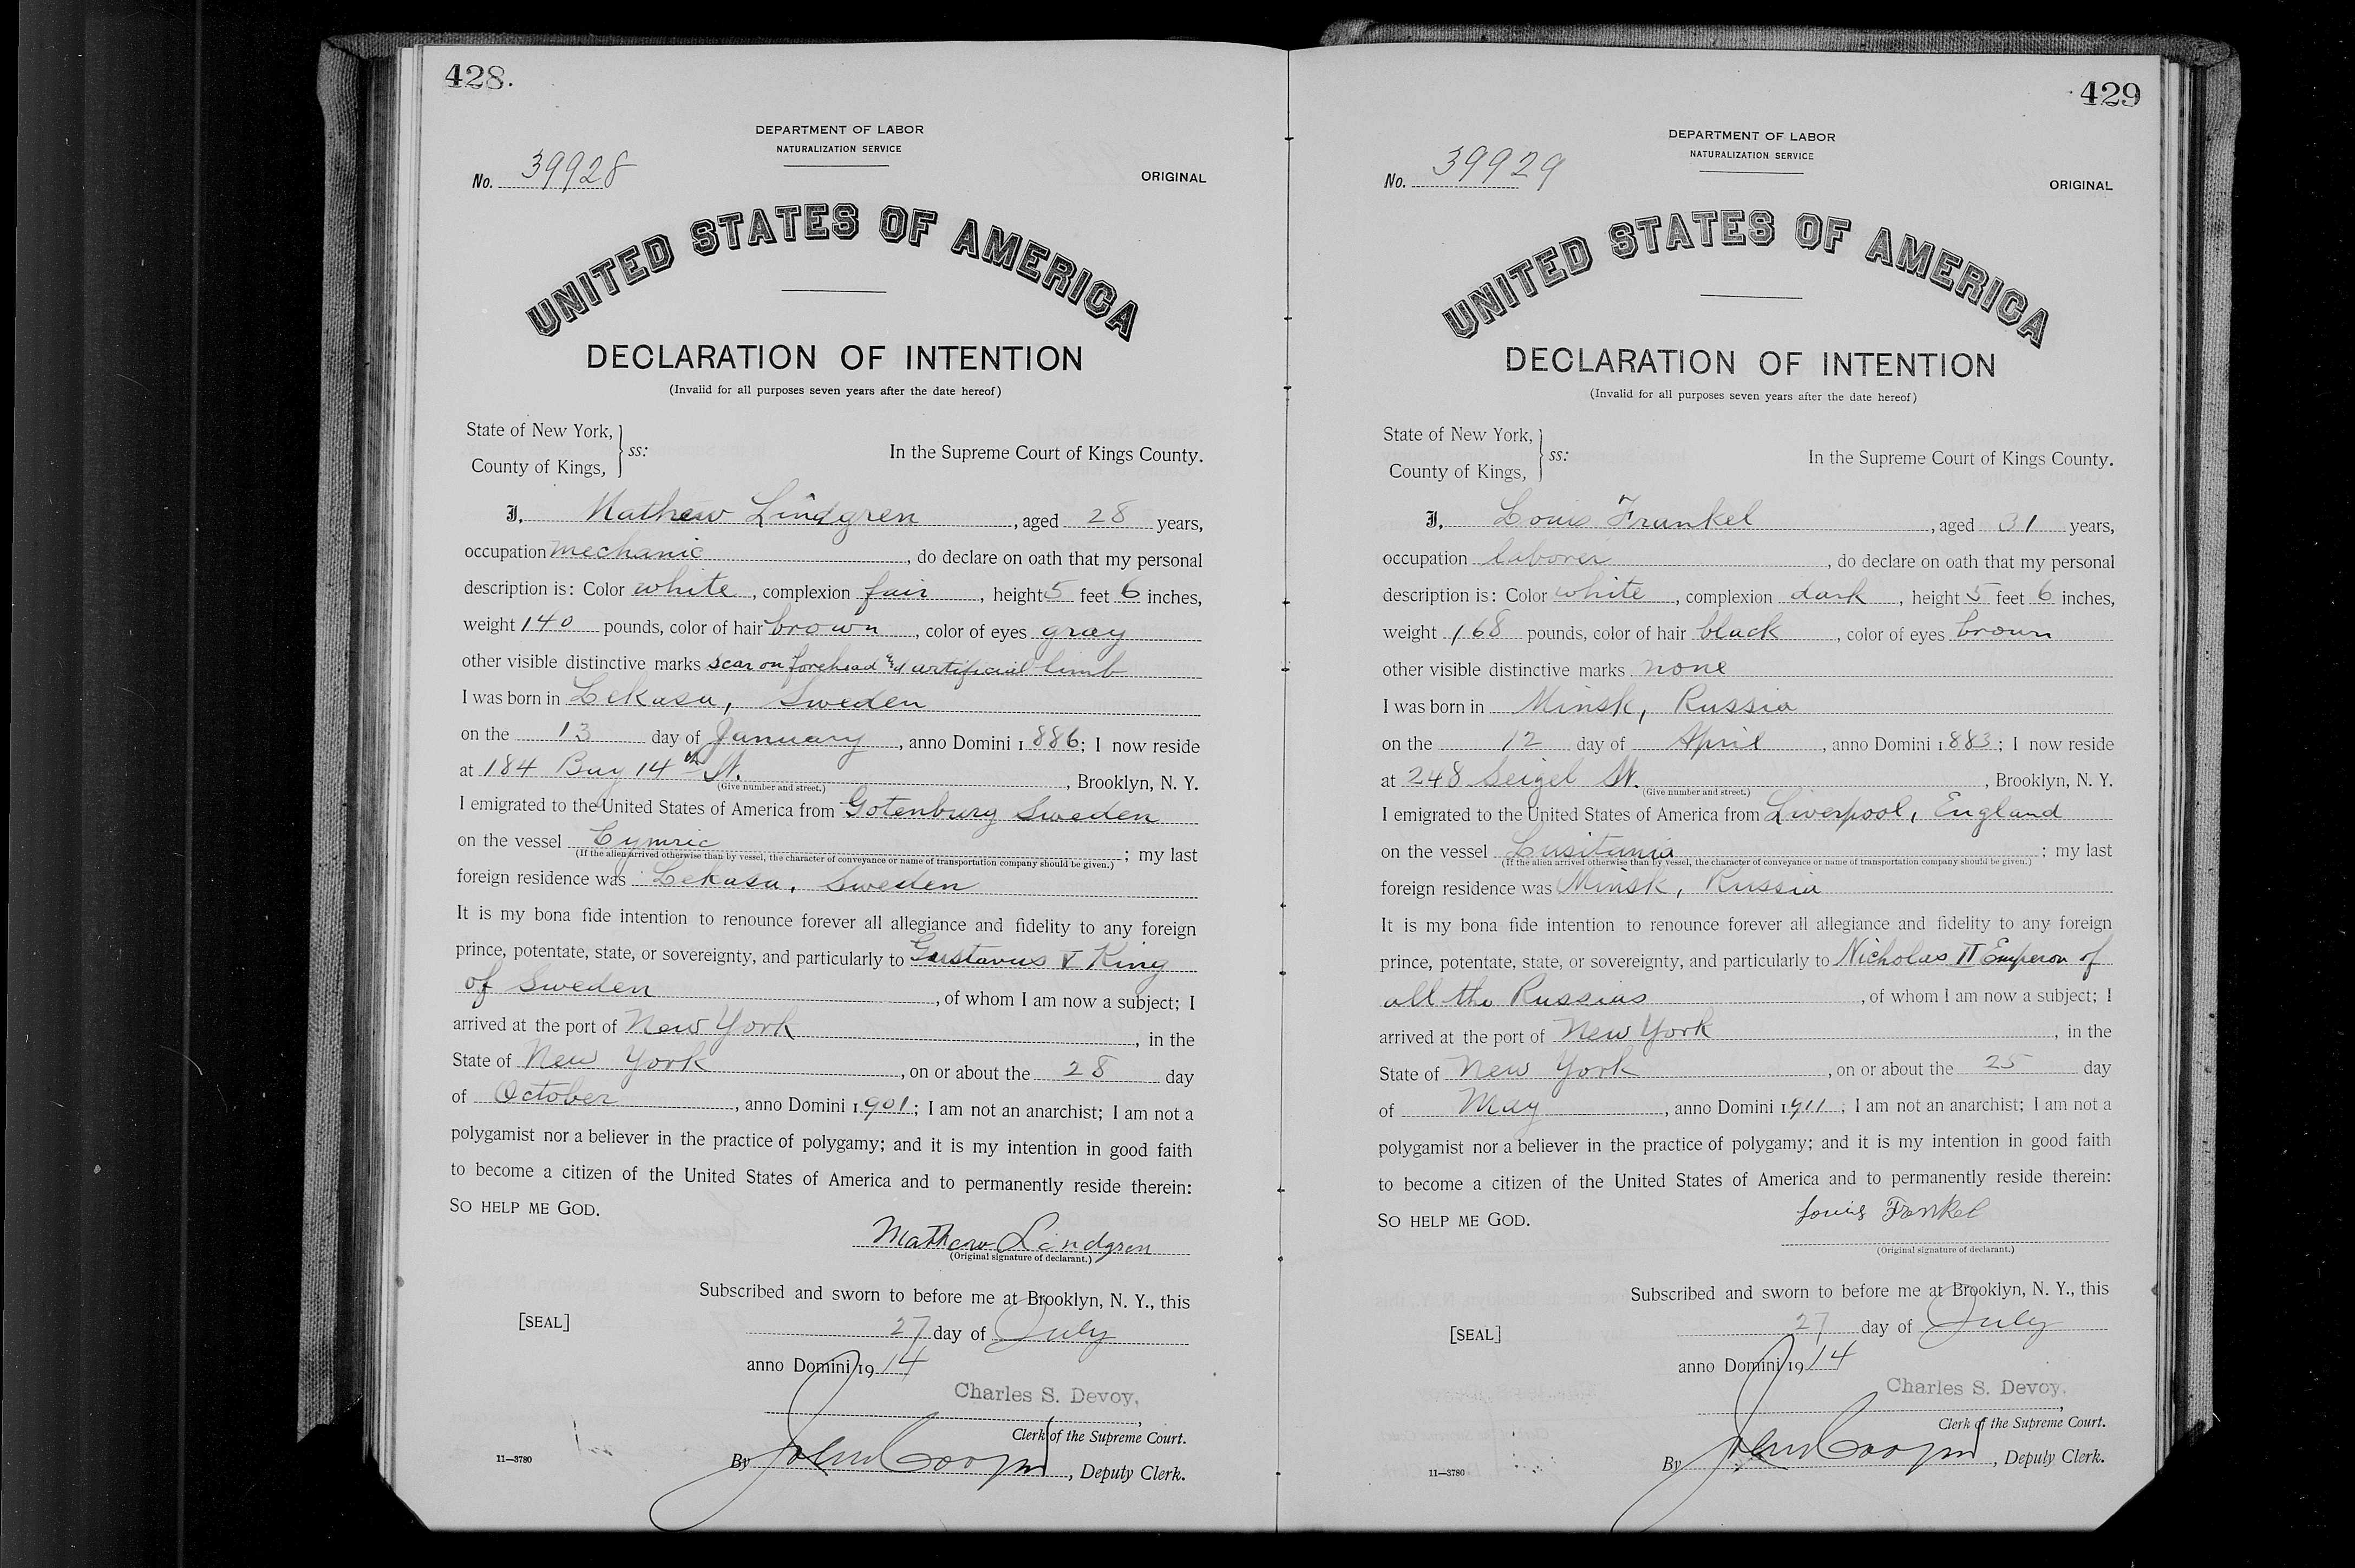 428.
DEPARTMENT OF LABOR
NATURALIZATION SERVICE
No. 39928
ORIGINAL
UNITED STATES OF AMERICA
DECLARATION OF INTENTION
(Invalid for all purposes seven years after the date hereof)
State of New York,
County of Kings,
ss:
In the Supreme Court of Kings County.
I, Mathew Lindgren, aged 28 years,
occupation mechanic, do declare on oath that my personal
description is: Color white, complexion fair, height 5 feet 6 inches,
weight 140 pounds, color of hair brown, color of eyes gray
other visible distinctive marks scar on forehead & artificial limb
I was born in Lekasa, Sweden
on the 13 day of January, anno Domini 1886; I now reside
at 184 Bay 14th St., Brooklyn, N. Y.
(Give number and street.)
I emigrated to the United States of America from Gotenburg Sweden
on the vessel Cymric; my last
(If the alien arrived otherwise than by vessel, the character of conveyance or name of transportation company should be given.)
foreign residence was Lekasa, Sweden
It is my bona fide intention to renounce forever all allegiance and fidelity to any foreign
prince, potentate, state, or sovereignty, and particularly to Gustavus V King
of Sweden, of whom I am now a subject; I
arrived at the port of New York, in the
State of New York, on or about the 28 day
of October, anno Domini 1901; I am not an anarchist; I am not a
polygamist nor a believer in the practice of polygamy; and it is my intention in good faith
to become a citizen of the United States of America and to permanently reside therein:
SO HELP ME GOD.
Mathew Lindgren
(Original signature of declarant.)
Subscribed and sworn to before me at Brooklyn, N. Y., this
[SEAL]
27 day of July
anno Domini 1914
Charles S. Devoy,
Clerk of the Supreme Court.
By John Cooper, Deputy Clerk.
11—3780
429
DEPARTMENT OF LABOR
NATURALIZATION SERVICE
No. 39929
ORIGINAL
UNITED STATES OF AMERICA
DECLARATION OF INTENTION
(Invalid for all purposes seven years after the date hereof)
State of New York,
County of Kings,
ss:
In the Supreme Court of Kings County.
I, Louis Frunkel, aged 31 years,
occupation laborer, do declare on oath that my personal
description is: Color white, complexion dark, height 5 feet 6 inches,
weight 168 pounds, color of hair black, color of eyes brown
other visible distinctive marks none
I was born in Minsk, Russia
on the 12 day of April, anno Domini 1883; I now reside
at 248 Seigel St., Brooklyn, N. Y.
(Give number and street.)
I emigrated to the United States of America from Liverpool, England
on the vessel Lusitania; my last
(If the alien arrived otherwise than by vessel, the character of conveyance or name of transportation company should be given.)
foreign residence was Minsk, Russia
It is my bona fide intention to renounce forever all allegiance and fidelity to any foreign
prince, potentate, state, or sovereignty, and particularly to Nicholas II Emperor of
all the Russias, of whom I am now a subject; I
arrived at the port of New York, in the
State of New York, on or about the 25 day
of May, anno Domini 1911; I am not an anarchist; I am not a
polygamist nor a believer in the practice of polygamy; and it is my intention in good faith
to become a citizen of the United States of America and to permanently reside therein:
SO HELP ME GOD.
Louis Frenkel
(Original signature of declarant.)
Subscribed and sworn to before me at Brooklyn, N. Y., this
[SEAL]
27 day of July
anno Domini 1914
Charles S. Devoy,
Clerk of the Supreme Court.
By John Cooper, Deputy Clerk.
11—3780